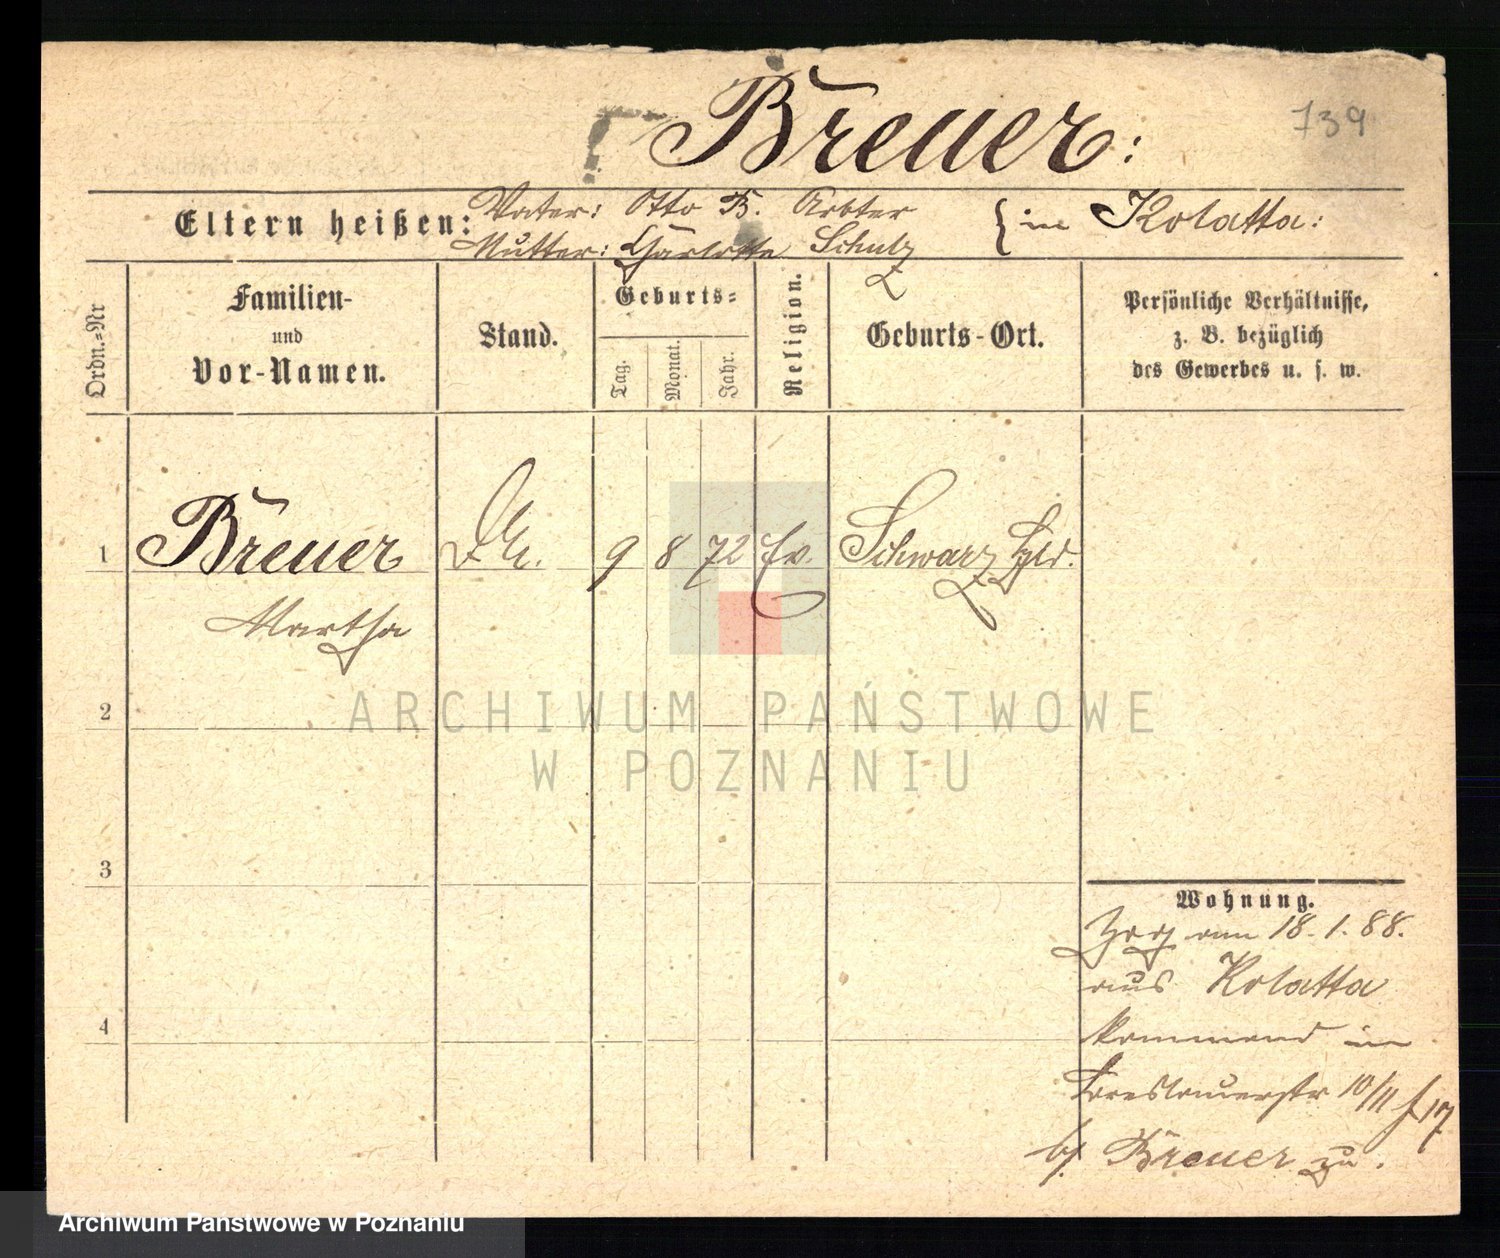 Breuer:
739
Eltern heißen:
Vater: Otto B. Arbter
Mutter: Charlotte Schulz
in Kolatta:
Ordn.=Nr
Familien-
und
Vor-Namen.
Stand.
Geburts=
Tag.
Monat.
Jahr.
Religion.
Geburts-Ort.
Persönliche Verhältnisse,
z. B. bezüglich
des Gewerbes u. s. w.
1 Breuer 9 8 72 Ev. Schwarz Hld.
Martha
2
3
4
ARCHIWUM PAŃSTWOWE
W POZNANIU
Wohnung.
Zog am 18.1.88.
aus Kolatta
kommend in
Breslauerstr 10/11
b/ Breuer zu.
Archiwum Państwowe w Poznaniu